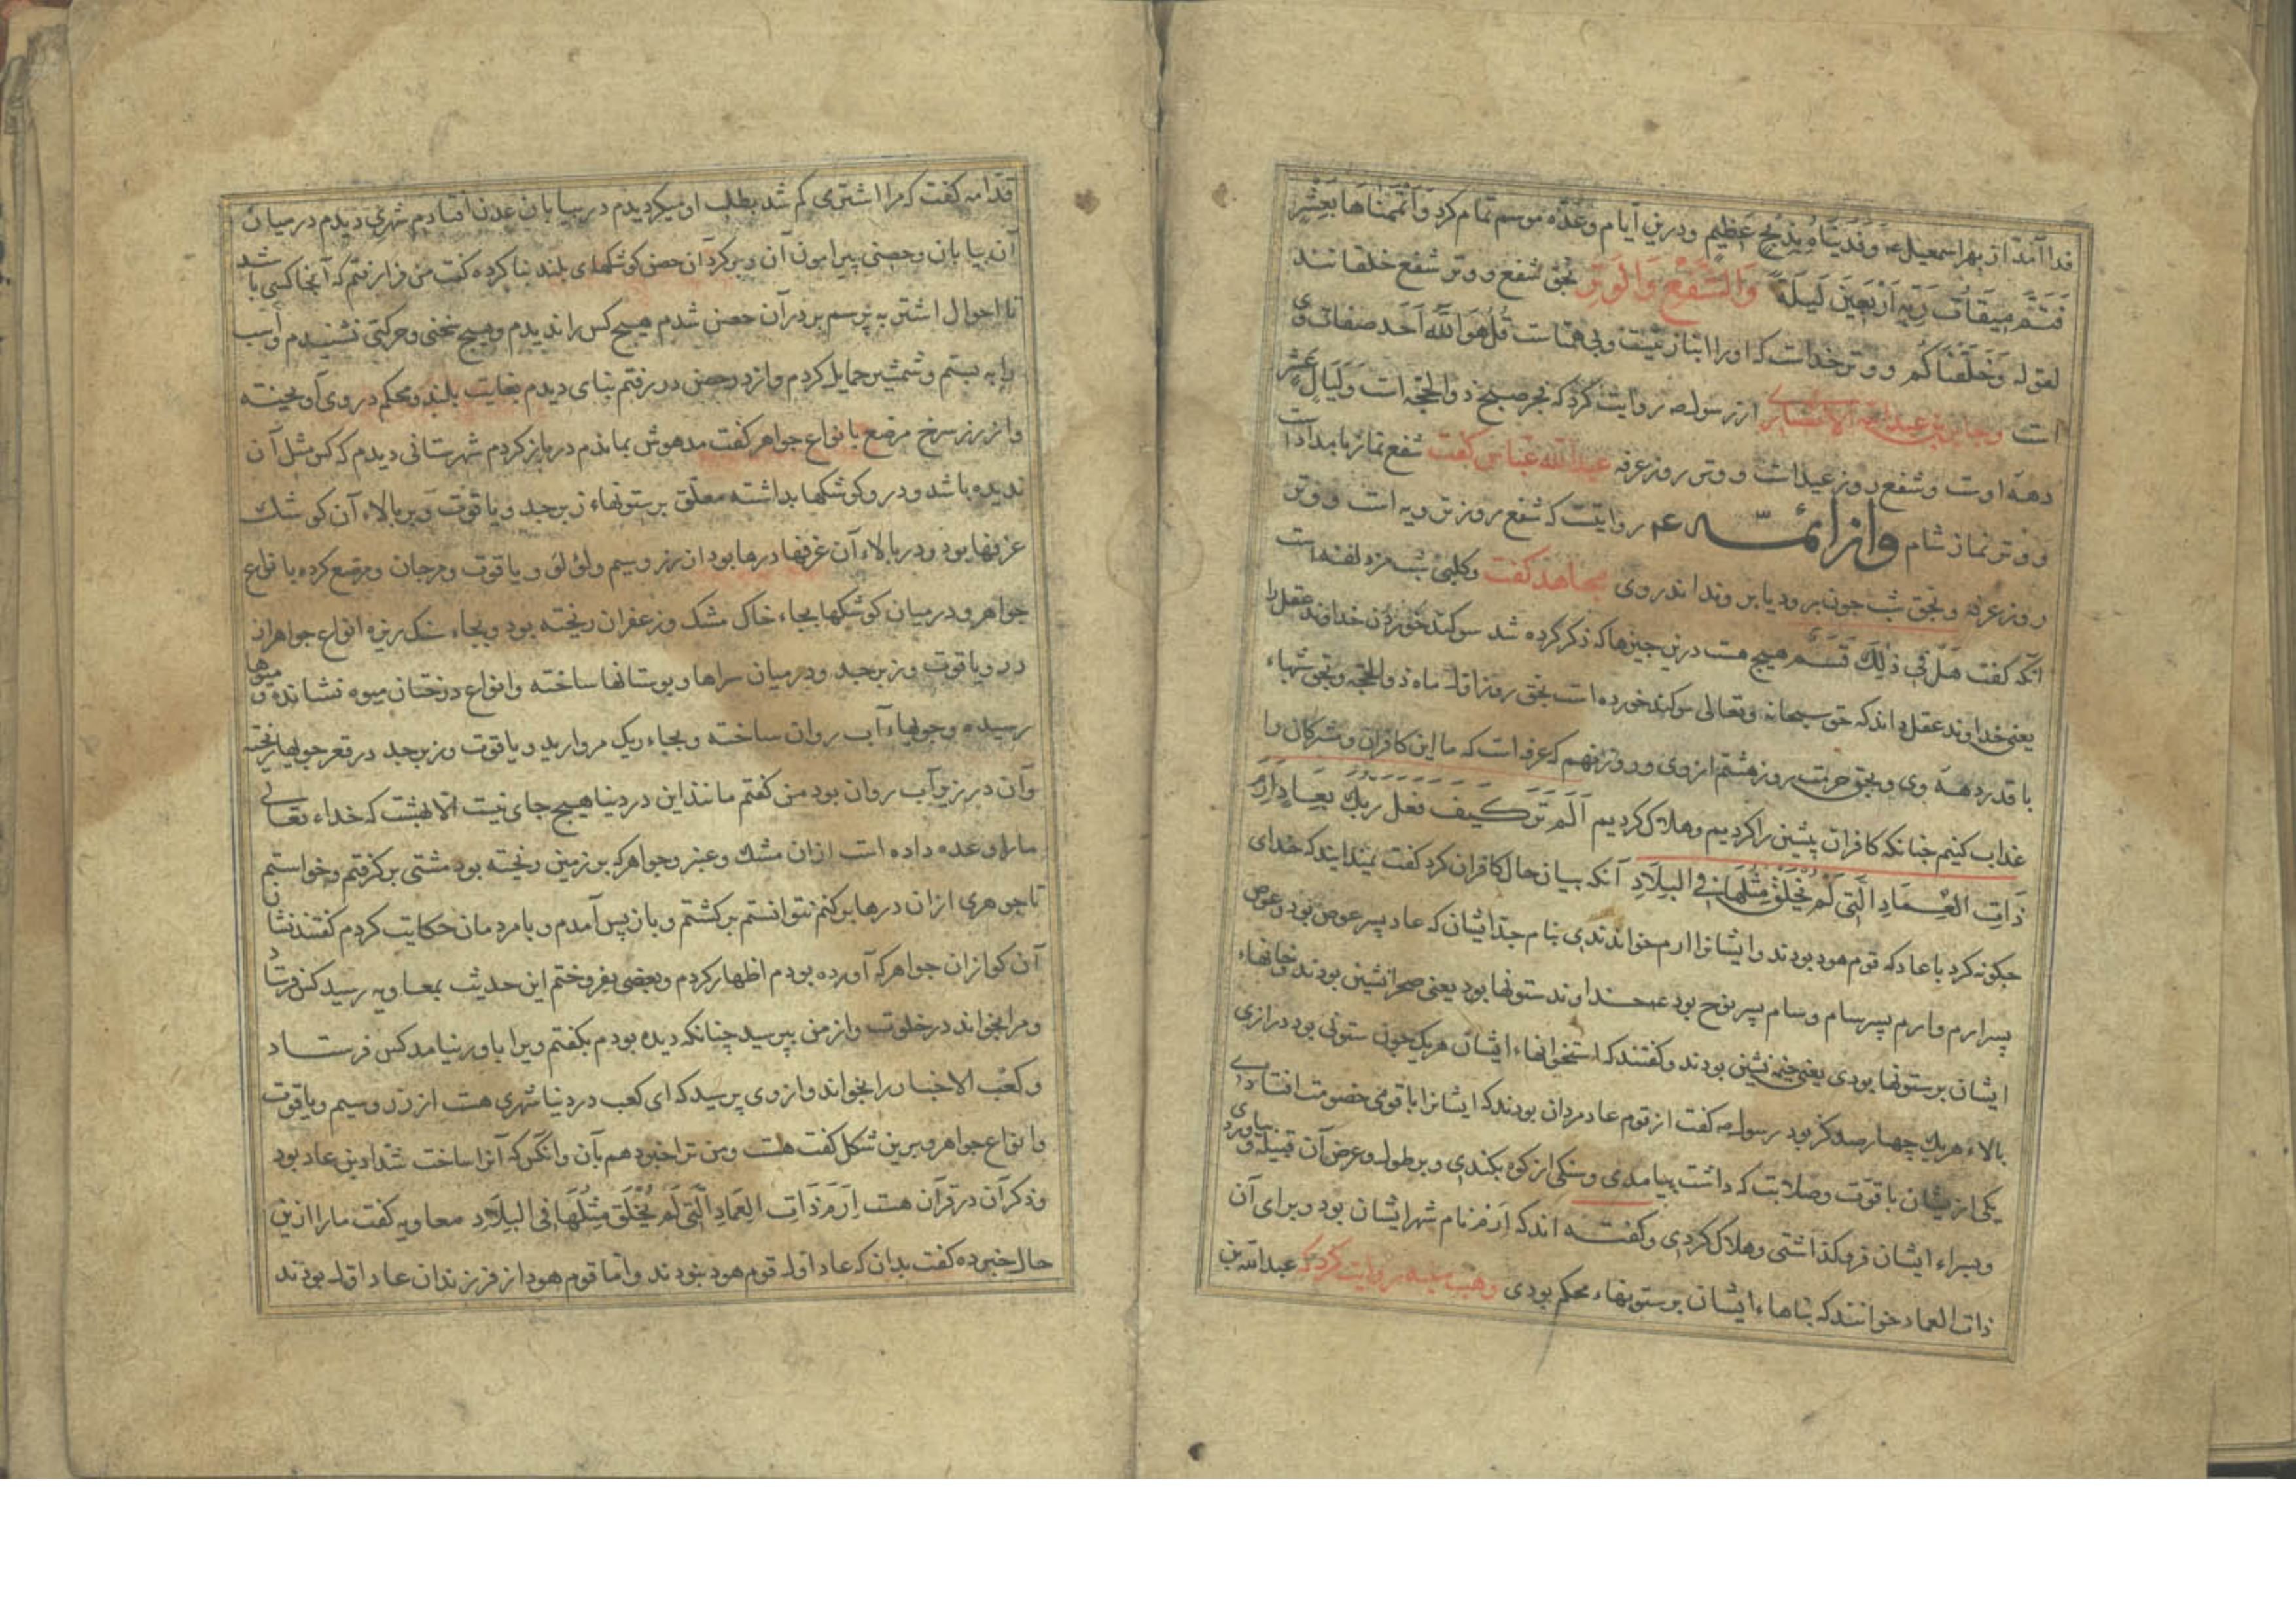 فدا آمد از بهر اسمعیل عم وَفَدَیْنَاهُ بِذِبْحٍ عَظِیمٍ و درین ایام وعدّه موسم تمام کرد وَاَتْمَمْنَاهَا بِعَشْرٍ
فَتَمَّ مِیقَاتُ رَبِّهِ اَرْبَعِینَ لَیلَةً وَالشَّفْعِ وَالْوَتْرِ بحق شفع و وتر شفع خلقانند
لقوله وَخَلَقْنَاکُم و وتر خداست که او را انباز نیست و بی همتاست قُل هُوَ اللّهُ اَحَد صفات وی
است وجابر بن عبدالله الانصاری از رسول صه روایت کرد که فجر صبح ذوالحجّه است وَلَیَالٍ عَشْرٍ
دهه اوست و شفع روز عید است و وتر روز عرفه عبدالله عباس گفت شفع نماز بامداد است
و وتر نماز شام واز ائمّه عم روایتست که شفع روز ترویه است و وتر
روز عرفه وبحق شب چون برود یا بروند اندر وی مجاهد گفت و کلبی شب مزدلفه است
آنکه گفت هَلْ فِی ذٰلِکَ قَسَمٌ هیچ هست درین چیزها که ذکر کرده شد سوکند خوردن خداوند عقل را
یعنی خداوند عقل داند که حق سبحانه وتعالی سوکند خورده است بحق روز اول ماه ذوالحجّه وبحق شبهاء
با قدر دهه وی وبحق حرمت روز هشتم از وی و روز نهم که عرفه است که ما این کافران ومشرکان را
عذاب کنیم چنانکه کافران پیشین را کردیم وهلاک کردیم اَلَم تَرَ کَیفَ فَعَلَ رَبُّکَ بِعَادٍ اِرَمَ
ذَاتِ العِمَادِ الَّتِی لَمْ یُخْلَقْ مِثْلُهَا فِی البِلَادِ آنکه بیان حال کافران کرد گفت نمیدانید که خدای
چگونه کرد با عاد که قوم هود بودند وایشانرا ارم خواندندی بنام جد ایشان که عاد پسر عوص بود وعوص
پسر ارم وارم پسر سام وسام پسر نوح بود عم خداوند ستونها بود یعنی صحرانشین بودند وخانهاء
ایشان بر ستونها بودی یعنی خیمه نشین بودند وگفتند که استخوانهاء ایشان هریک چون ستونی بود درازی
بالاء هریک چهار صد گز بود رسول صه گفت از قوم عاد مردان بودند که ایشانرا با قومی خصومت افتادی
یکی ازیشان با قوّت وصلابت که داشت بیامدی وسنگی از کوه بکندی وبر طول وعرض آن قبیله بیاوردی و
وبسراء ایشان فروگذاشتی وهلاک کردی وگفته اند که اِرَم نام شهر ایشان بود وبرای آن
ذات العماد خوانند که بناهاء ایشان بر ستونهاء محکم بودی وهب منبه روایت کرد که عبدالله بن
قدّامه گفت که مرا اشتری گم شد بطلب او میگردیدم در بیابان عدن افتادم شهری دیدم در میان
آن بیابان وحصنی پیرامون آن وبر گرد آن حصن کوشکهای بلند بنا کرده گفت من فراز رفتم که آنجا کسی باشد
تا احوال اشتر بپرسم بر در آن حصن شدم هیچ کس را ندیدم وهیچ سخنی وحرکتی نشنیدم واسب
را به بستم وشمشیر حمایل کردم واز در حصن در رفتم بنای دیدم بغایت بلند ومحکم در وی آویخته
واز زر سرخ مرصع با نواع جواهر گفت مدهوش بماندم در باز کردم شهرستانی دیدم که کس مثل آن
ندیده باشد ودرو کوشکها بداشته معلّق برستونهاء زبرجد ویاقوت وبر بالاء آن کوشک
غرفها بود ودر بالاء آن غرفها درها بود از زر وسیم ولؤلؤ ویاقوت ومرجان ومرصّع کرده با نواع
جواهر ودر میان کوشکها بجاء خاک مشک وزعفران ریخته بود وبجاء سنگ ریزه انواع جواهر از
درّ ویاقوت وزبرجد ودر میان سراها وبوستانها ساخته وانواع درختان میوه نشانده و میوها
رسیده وجویهاء آب روان ساخته وبجاء ریگ مروارید ویاقوت وزبرجد در قعر جویها ریخته
وآن در زیر آب روان بود من گفتم مانند این در دنیا هیچ جای نیست الّا بهشت که خداء تعالی
ما را وعده داده است از ان مشک وعنبر وجواهر که بر زمین ریخته بود مشتی بر گرفتم وخواستم
تا جوهری از ان درها برکنم نتوانستم برگشتم وباز پس آمدم وبا مردمان حکایت کردم گفتند نشان
آن کو از ان جواهر که آورده بودم اظهار کردم وبعضی بفروختم این حدیث بمعاویه رسید کس فرستاد
ومرا بخواند در خلوت واز من بپرسید چنانکه دیده بودم بگفتم ویرا باور نیامد کس فرستاد
وکعب الاخبار را بخواند واز وی پرسید که ای کعب در دنیا شهری هست از زر وسیم ویاقوت
وانواع جواهر وبرین شکل گفت هست ومن ترا خبر دهم بآن وانکس که آنرا ساخت شداد بن عاد بود
وذکر آن در قرآن هست اِرَمَ ذَاتِ العِمَادِ الَّتِی لَم یُخْلَق مِثْلُهَا فِی البِلَادِ معاویه گفت ما را ازین
حال خبر ده گفت بدان که عاد اول قوم هود نبودند واما قوم هود از فرزندان عاد اول بودند